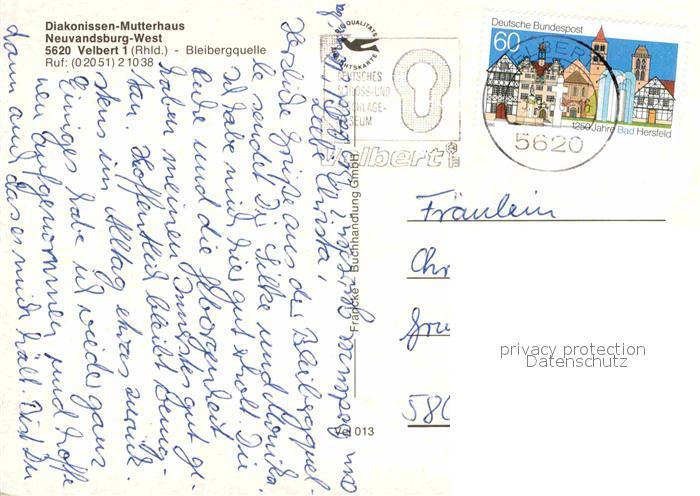 Diakonissen-Mutterhaus
Neuvandsburg-West
5620 Velbert 1 (Rhld.) - Bleibergquelle
Ruf: (02051) 21038
Liebe Christa,
Herzliche Grüße aus der Bleibergquel-
le sendet Dir Silke und Monika
Habe mich hier gut erholt. Die
Ruhe und die Geborgenheit
haben meinem Innersten gut ge-
tan. Hoffentlich bleibt
im Alltag etwas zurück.
Einiges habe ich wieder ganz
neu aufgenommen und hoffe
dann auf das es mich hält. Bist Du
Francke-Buchhandlung GmbH
Vel 013
QUALITÄTS
ANSICHTSKARTE
DEUTSCHES
SCHLOSS-UND
BESCHLÄGE-
MUSEUM
Velbert
Deutsche Bundespost
60
1250 Jahre Bad Hersfeld
VELBERT
5620
Fräulein
Chr
580
privacy protection
Datenschutz